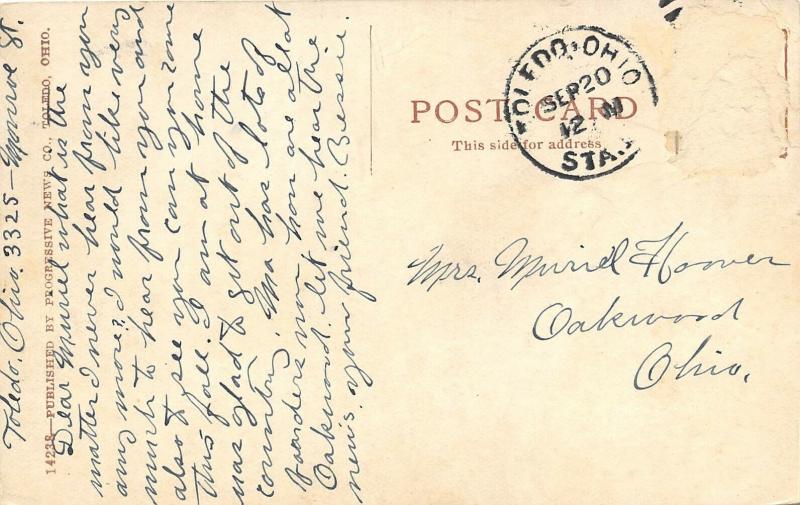 Toledo, Ohio. 3325 — Monroe St.
14238—PUBLISHED BY PROGRESSIVE NEWS CO., TOLEDO, OHIO.
Dear Muriel what is the
matter I never hear from you
any more? I would like very
much to hear from you and
also to see you can you come
this fall. I am at home
was glad to get out of the
country. Ma has lots of
boarders now how are all at
Oakwood. let me hear the
news. your friend. Bessie.
POST CARD
This side for address
TOLEDO, OHIO
SEP 20
12 M
STA.
Mrs. Muriel Hoover
Oakwood
Ohio.